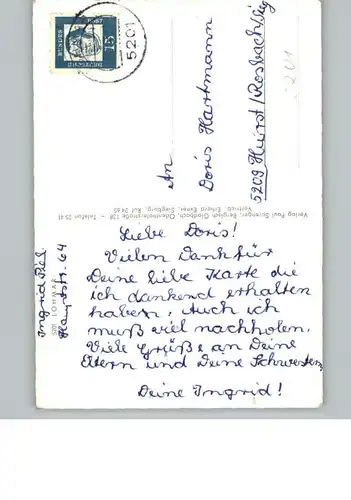 Liebe Doris!
Vielen Dank für
Deine liebe Karte die
ich dankend erhalten
haben. Auch ich
muß viel nachholen.
Viele Grüße an Deine
Eltern und Deine Schwestern
Deine Ingrid!
An
Doris Hartmann
5209 Hurst/Rosbach/Sieg
Ingrid
Hauptstr. 64
5201 LOHMAR
Verlag Paul Sprenger, Bergisch Gladbach, Odenthalerstraße 128 – Telefon 25 41
Vertrieb: Erhard Exner, Siegburg, Ruf 24 65
15
5201
5201